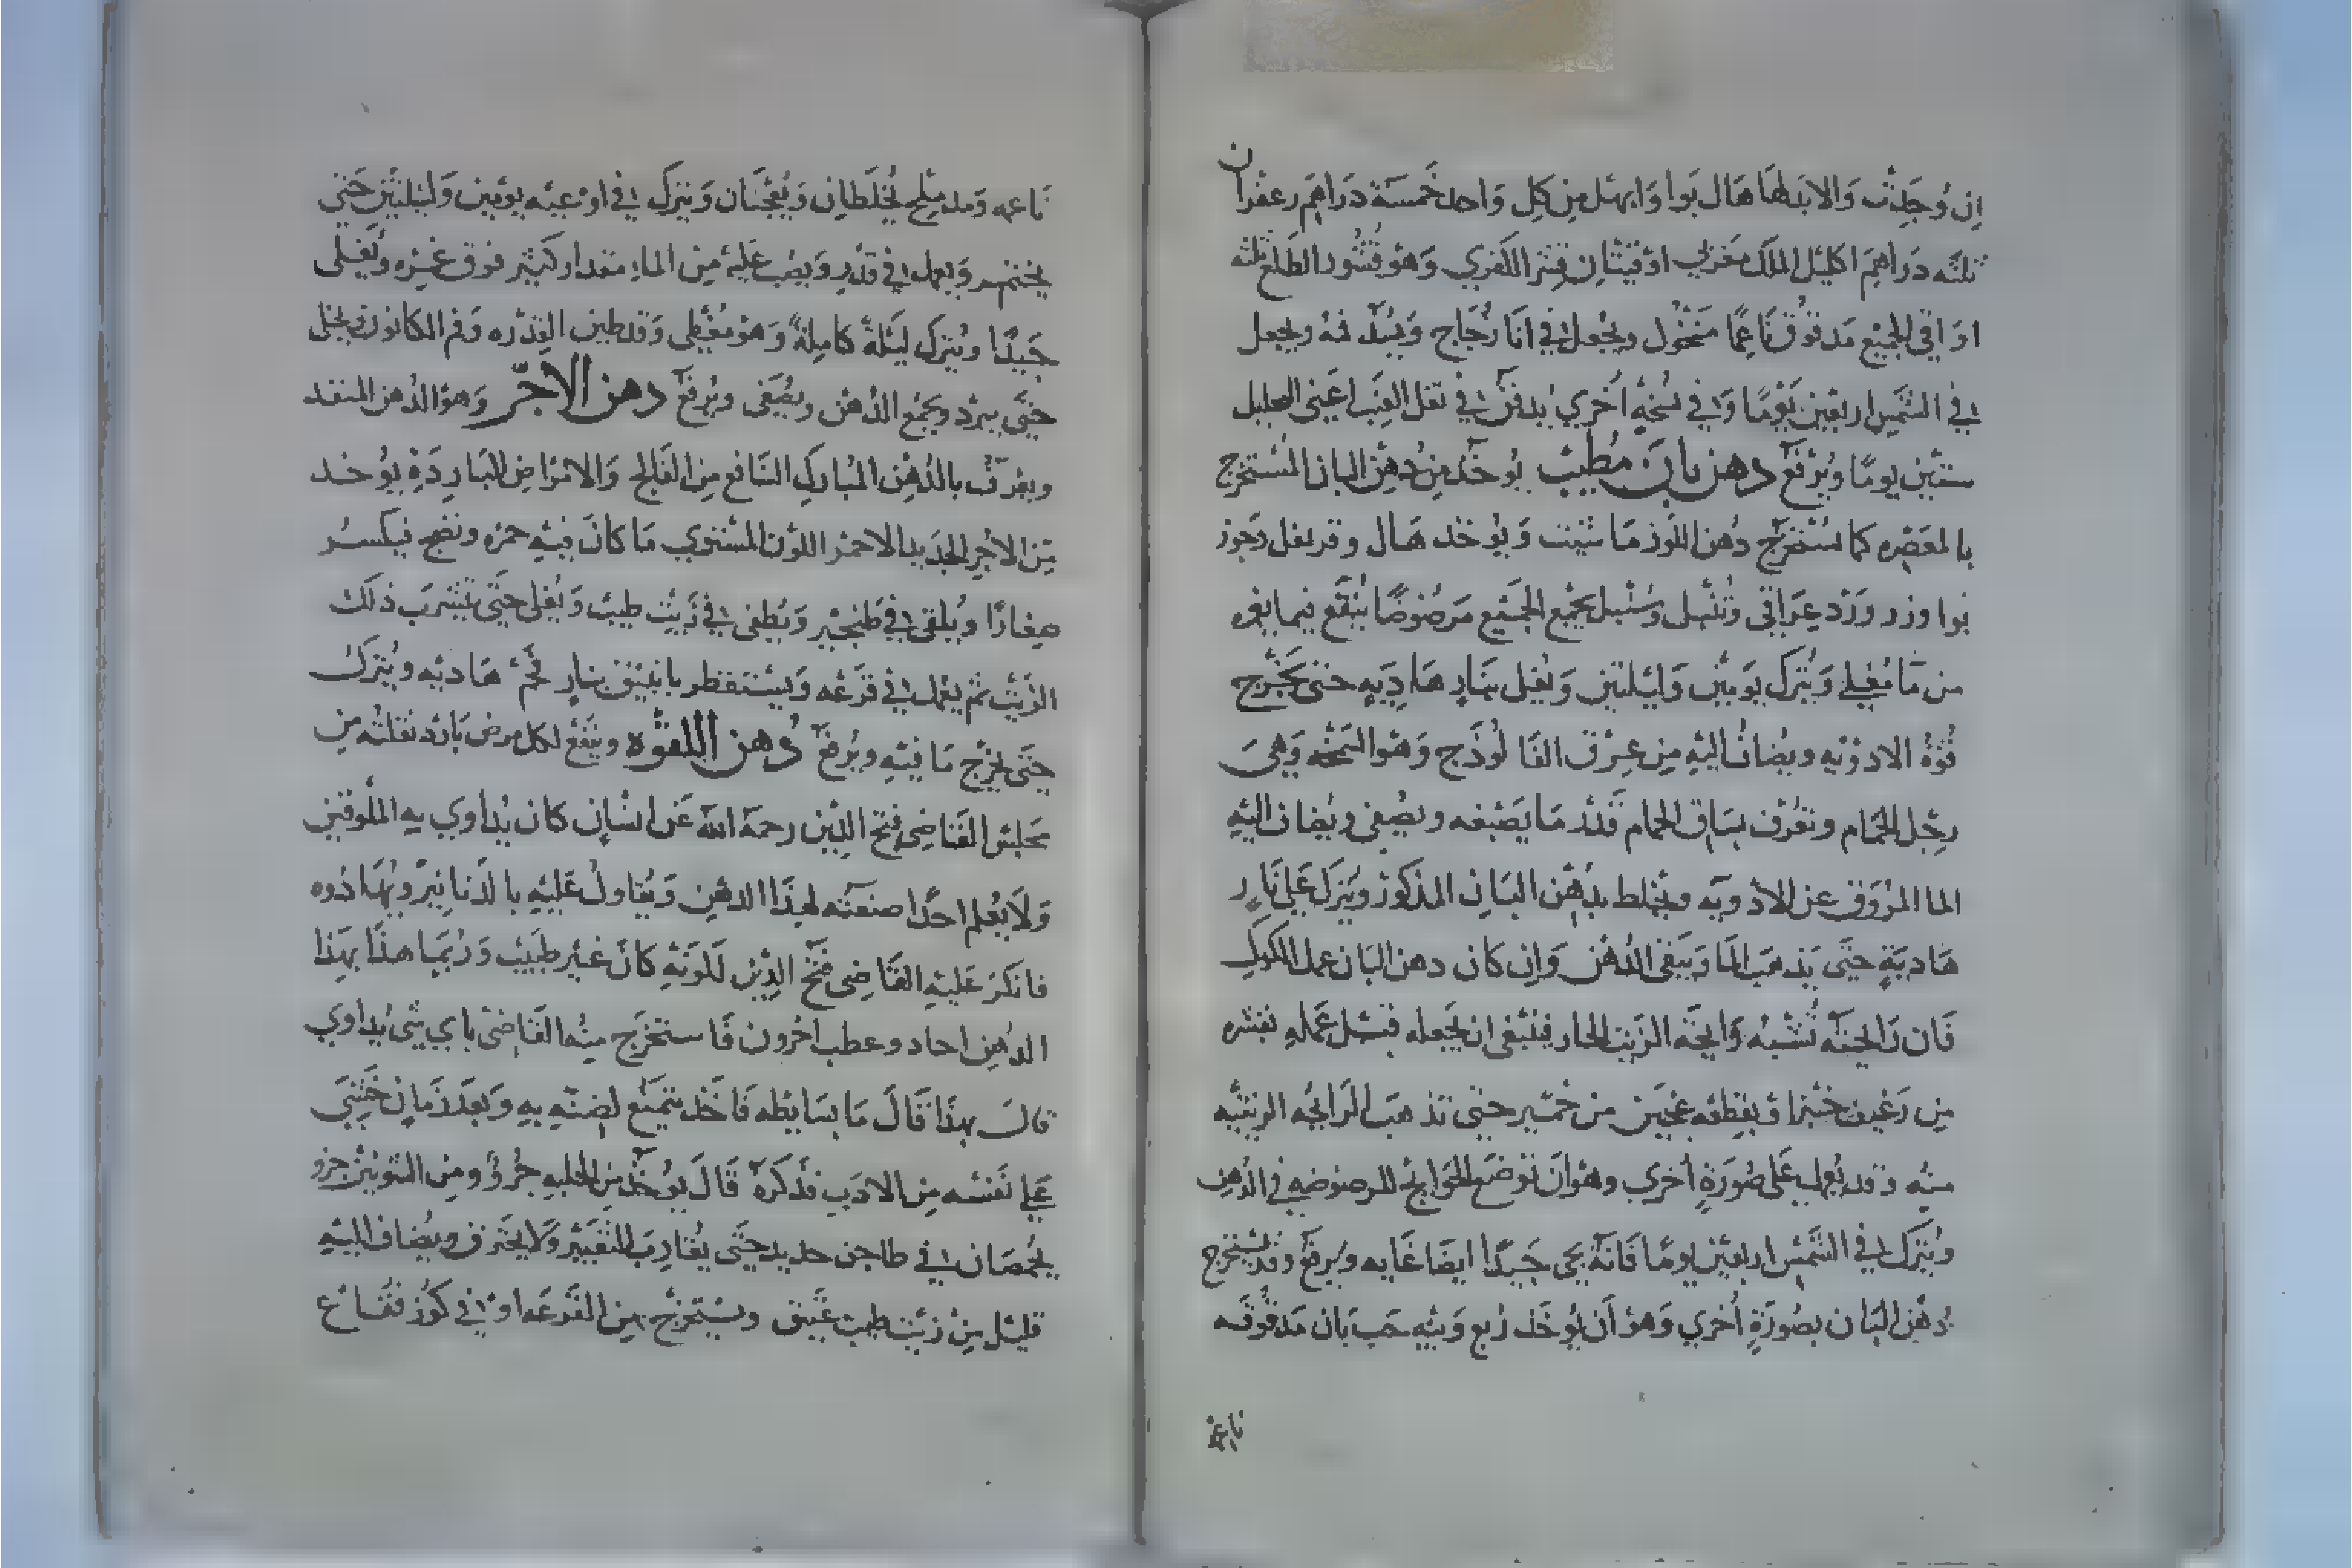 ان وُجدت والا بدلها هال بوا وابهل من كل واحد خمسة دراهم زعفران
ثلثه دراهم اكليل الملك مغربي اوقيتان قشر الكفري وهو قشور الطلع ثلثه
اواقي الجميع مدقوق ناعمًا منخول ويجعل في انا زجاج ويسد فمه ويجعل
في الشمس اربعين يومًا وفي نسخه أخري يدفن في ثفل العنب اعني
ستين يومًا ويرفع دهن بان مطيب يوخذ من دهن البان المستخرج
بالمعصره كما يستخرج دهن اللوز ما شيت ويوخذ هال وقرنفل وجوز
بوا وزر ورد عراقي وسنبل يجمع الجميع مرضوضًا ينقع فيما يغمره
من ما مغلي ويترك يومين وليلتين ويغلي بنار هاديه حتى تخرج
قوة الادويه ويضاف اليه من عرق الفالوذج وهو وهي
رجل الحمام وتعرف بساق الحمام قدر ما يصبغه ويصفي ويضاف اليه
الما المروق عن الادويه ويخلط بدهن البان المذكور ويترك علي نار
هاديةٍ حتى يذهب الما ويبقي الدهن وان كان دهن البان عمل
فان رايحته تشبه رايحة الزيت الحار فينبغي ان يجعله قبل عمله بقشره
من رغيف خبز او بقطعه عجين من خمير حتى تذهب الرايحه الزيتيه
منه وقد يعمل على صورةٍ أخري وهو ان توضع الحوايج المرضوضه في الدهن
ويترك في الشمس اربعين يومًا فانه يجي جيدًا ايضا غايه ويرفع وقد يستخرج
دهن البان بصورةٍ أخري وهو أن يوخذ ربع ويبه حب بان مدقوقه
ناعمه
ناعمه ومد ملح يخلطان ويعجنان ويترك في اوعيه يومين وليلتين حتى
يختمر ويعمل في قدر ويصب عليه من الماء مقدار كبير فوق غمره ويغلي
جيدًا ويترك ليلةً كاملةً وهو مغطي وقد طين القدره وفم الكانون ويخلي
حتى يبرد ويجمع الدهن ويصفى ويرفع دهن الآجر وهو الدهن المنقذ
ويعرف بالدهن المبارك النافع من الفالج والامراض البارده يوخذ
من الاجر الجديد الاحمر اللون المستوي ما كان فيه حمره ونضج فيكسر
صغارًا ويلقى في طنجير ويطفى في زيت طيب ويغلي حتى يشرب ذلك
الزيت ثم يعمل في قرعه ويستقطر بانبيق بنار فحم هاديه ويترك
حتى يخرج ما فيه ويرفع دهن اللقوه وينفع لكل مرض بارد نقلته من
مجلس القاضى فتح الدين رحمه الله عن انسان كان يداوي به الملوقين
ولا يعلم احدًا صنعته لهذا الدهن ويقاول عليه بالدنانير ويهاذوه
فانكر عليه القاضى فتح الدين لكونه كان غير طبيب وربما هذا بهذا
الدهن احاد وعطب اخرون فاستخرج منه القاضى باي شى يداوي
قال بهذا قال ما بسايطه فاخذ يتمنع لضنه به وبعد زمان خشى
على نفسه من الادب فذكره قال يوخذ من الحلبه جزؤ ومن الشونيز جزو
يحمصان في طاجن حديد حتى يقارب التغيير ولا يحترق ويضاف اليه
قليل من زيت طيب عتيق ويستخرج من القرعه او في كوز فقاع